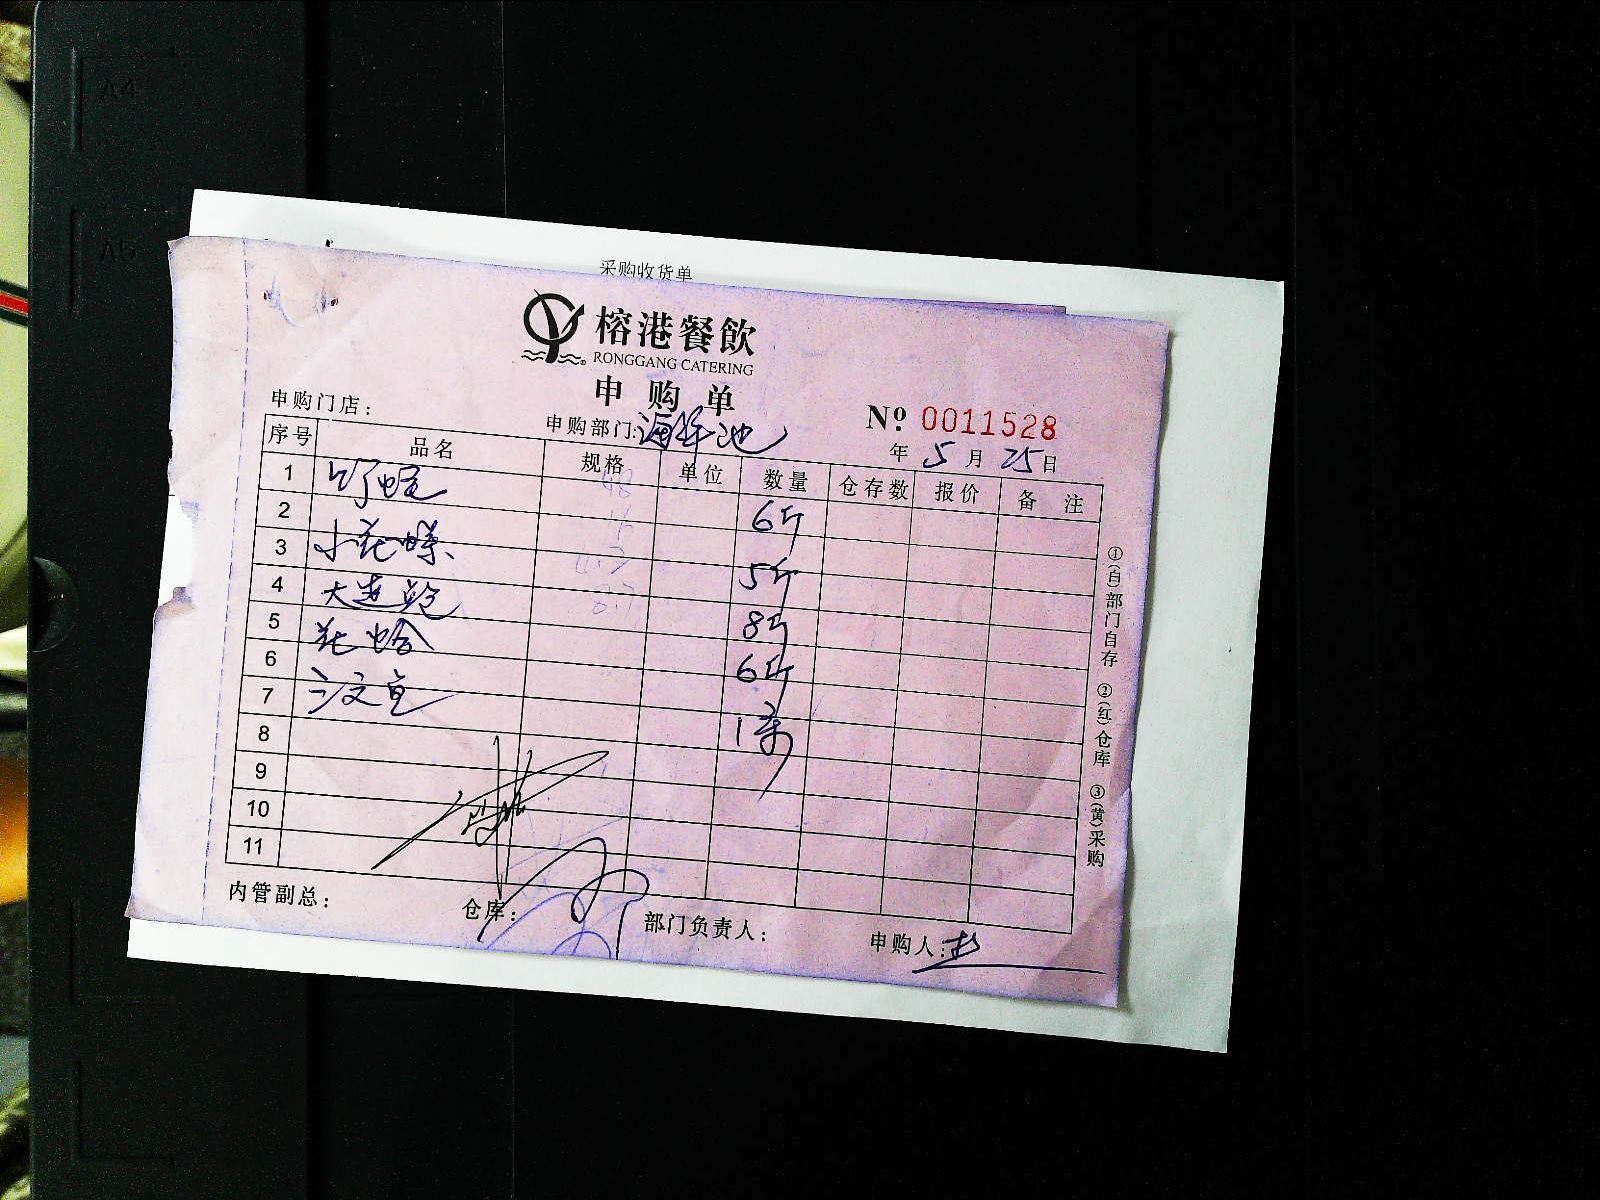 A4
A5
采购收货单
榕港餐飲
RONGGANG CATERING
申购单
申购门店：
申购部门：海鲜池
№ 0011528
年 5 月 25 日
序号 品名 规格 单位 数量 仓存数 报价 备注
1
2 6斤
3 小花螺 5斤
4 大连鲍 8斤
5 花蛤 6斤
6
7 1条
8
9
10
11
内管副总：
仓库：
部门负责人：
申购人：
①(白)部门自存 ②(红)仓库 ③(黄)采购